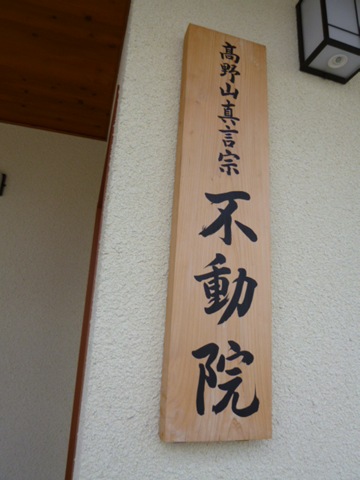 高野山真言宗
不動院